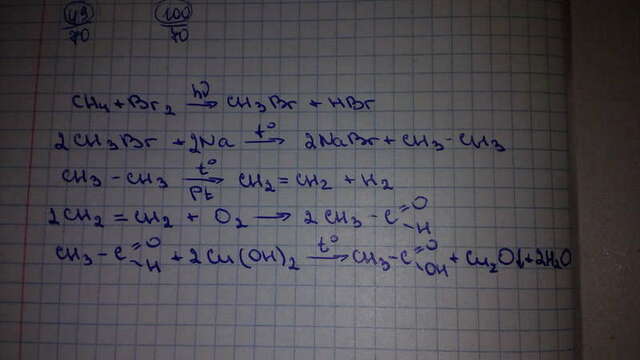 49 100
70 70
CH₄ + Br₂ hν → CH₃Br + HBr
2CH₃Br + 2Na t° → 2NaBr + CH₃-CH₃
CH₃-CH₃ t° → Pt CH₂=CH₂ + H₂
2CH₂=CH₂ + O₂ → 2CH₃-C=O -H
CH₃-C=O -H + 2Cu(OH)₂ t° → CH₃-C=O -OH + Cu₂O↓ + 2H₂O